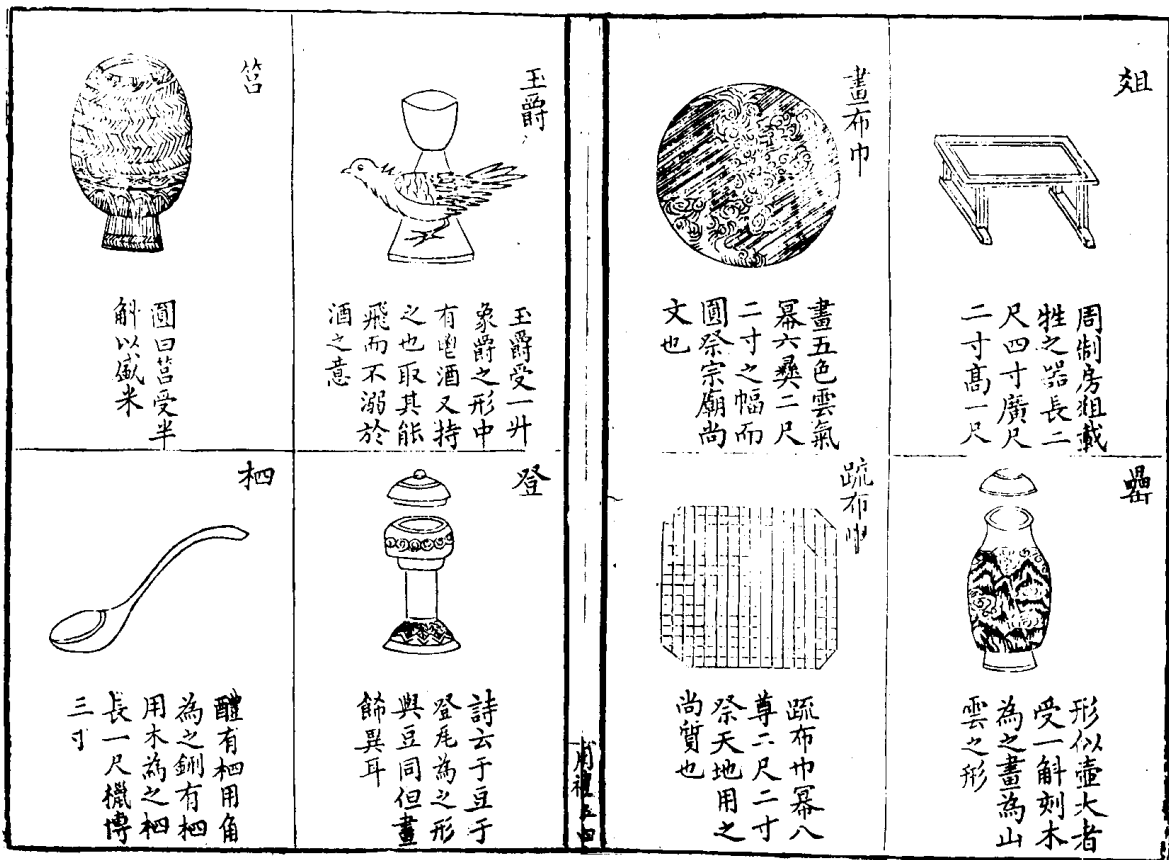 俎
周制房俎載
牲之器長二
尺四寸廣尺
二寸高一尺
畫布巾
畫五色雲氣
冪六彝二尺
二寸之幅而
圓祭宗廟尚
文也
罍
形似壺大者
受一斛刻木
為之畫為山
雲之形
疏布巾
疏布巾冪八
尊二尺二寸
祭天地用之
尚質也
周禮
玉爵
玉爵受一升
象爵之形中
有鬯酒又持
之也取其能
飛而不溺於
酒之意
筥
圓曰筥受半
斛以盛米
登
詩云于豆于
登尾為之形
與豆同但畫
飾異耳
柶
醴有柶用角
為之鉶有柶
用木為之柶
長一尺櫼博
三寸